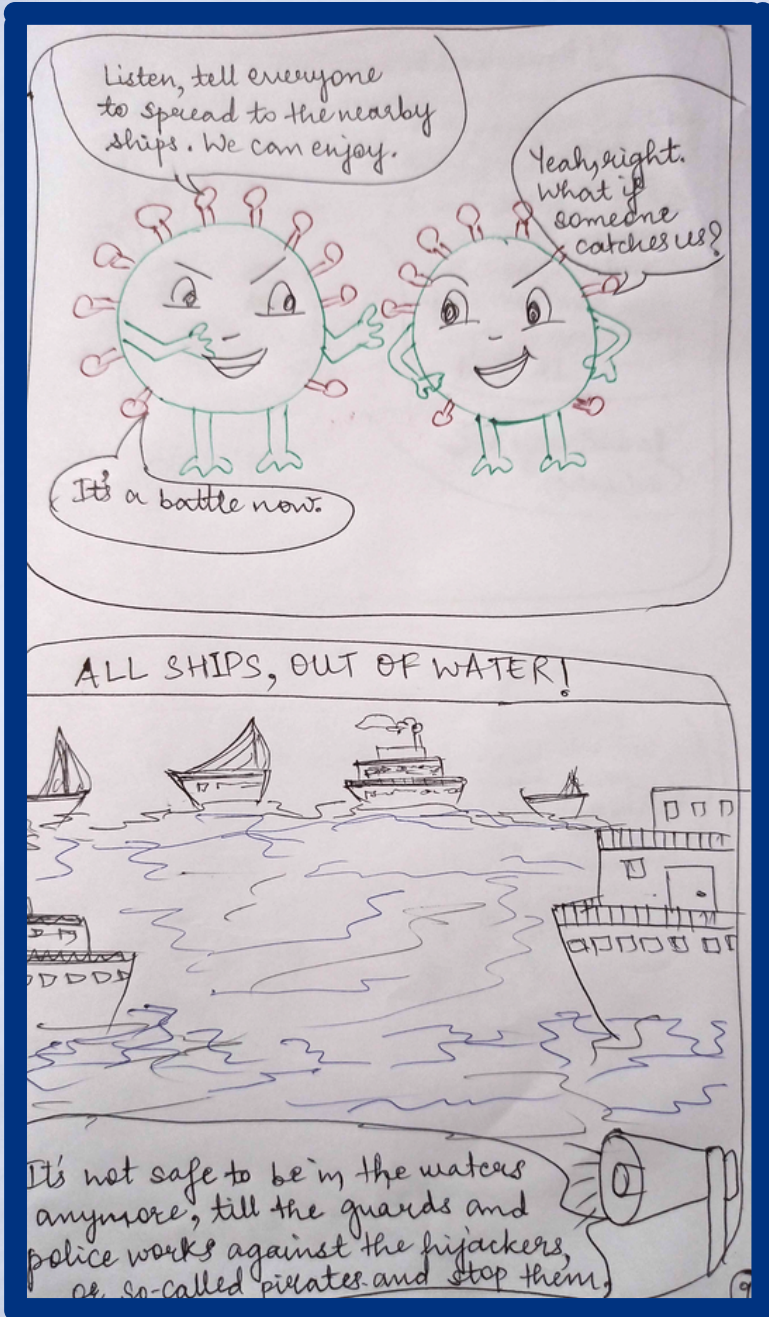 Listen, tell everyone
to spread to the nearby
ships. We can enjoy.
Yeah, right.
What if
someone
catches us?
It's a battle now.
ALL SHIPS, OUT OF WATER!
It's not safe to be in the waters
anymore, till the guards and
police works against the hijackers,
or so-called pirates and stop them.
9